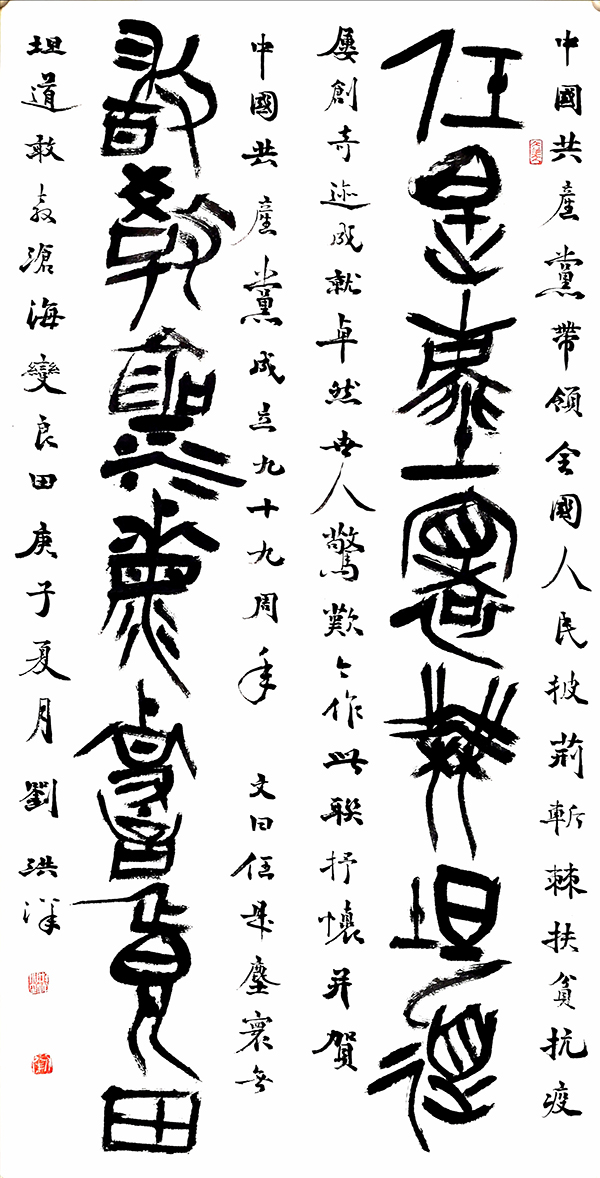 中國共產黨帶領全國人民披荊斬棘扶貧抗疫
任是塵寰無坦道
屢創奇迹成就卓然世人驚歎今作此聯抒懷并賀
中國共產黨成立九十九周年 文曰任是塵寰無
敢教滄海變良田
坦道敢教滄海變良田庚子夏月劉洪洋